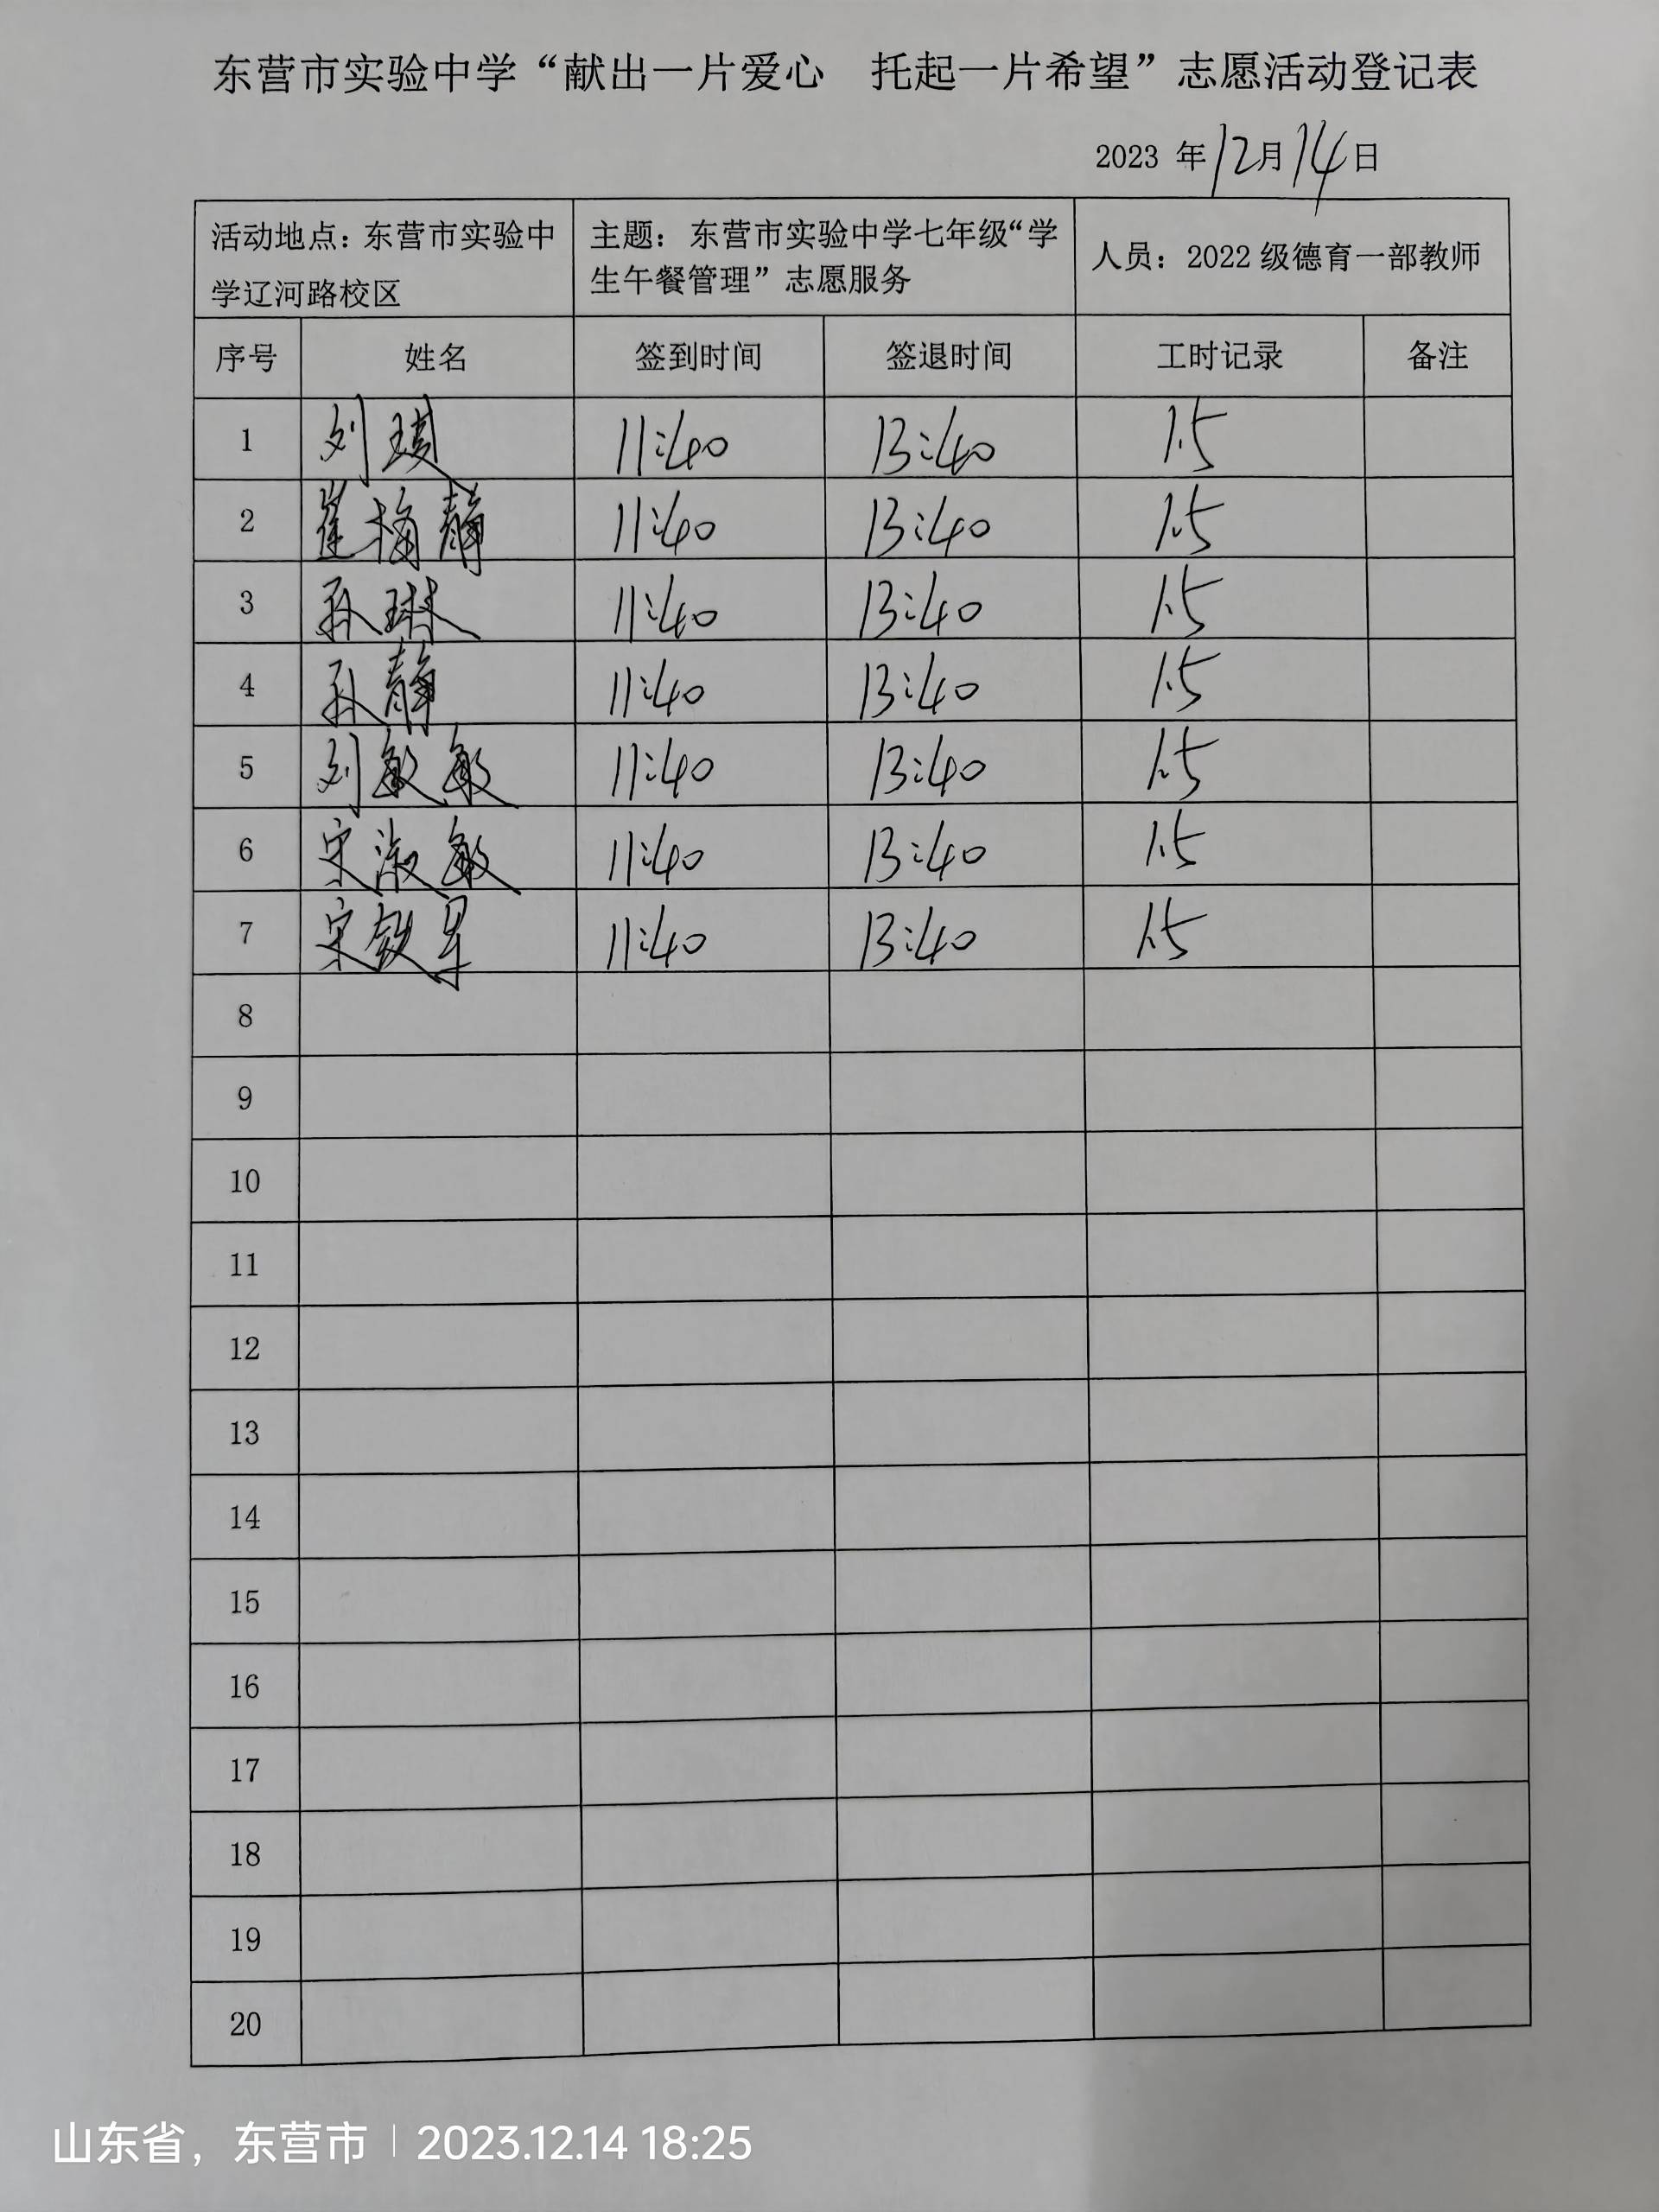 东营市实验中学“献出一片爱心 托起一片希望”志愿活动登记表
2023 年12月14日
活动地点：东营市实验中
学辽河路校区
主题：东营市实验中学七年级“学
生午餐管理”志愿服务
人员：2022 级德育一部教师
序号 姓名 签到时间 签退时间 工时记录 备注
1 刘 11:40 13:40 1.5
2 崔梅静 11:40 13:40 1.5
3 孙琳 11:40 13:40 1.5
4 孙静 11:40 13:40 1.5
5 刘敏敏 11:40 13:40 1.5
6 宋淑敏 11:40 13:40 1.5
7 宋 11:40 13:40 1.5
8
9
10
11
12
13
14
15
16
17
18
19
20
山东省，东营市 | 2023.12.14 18:25